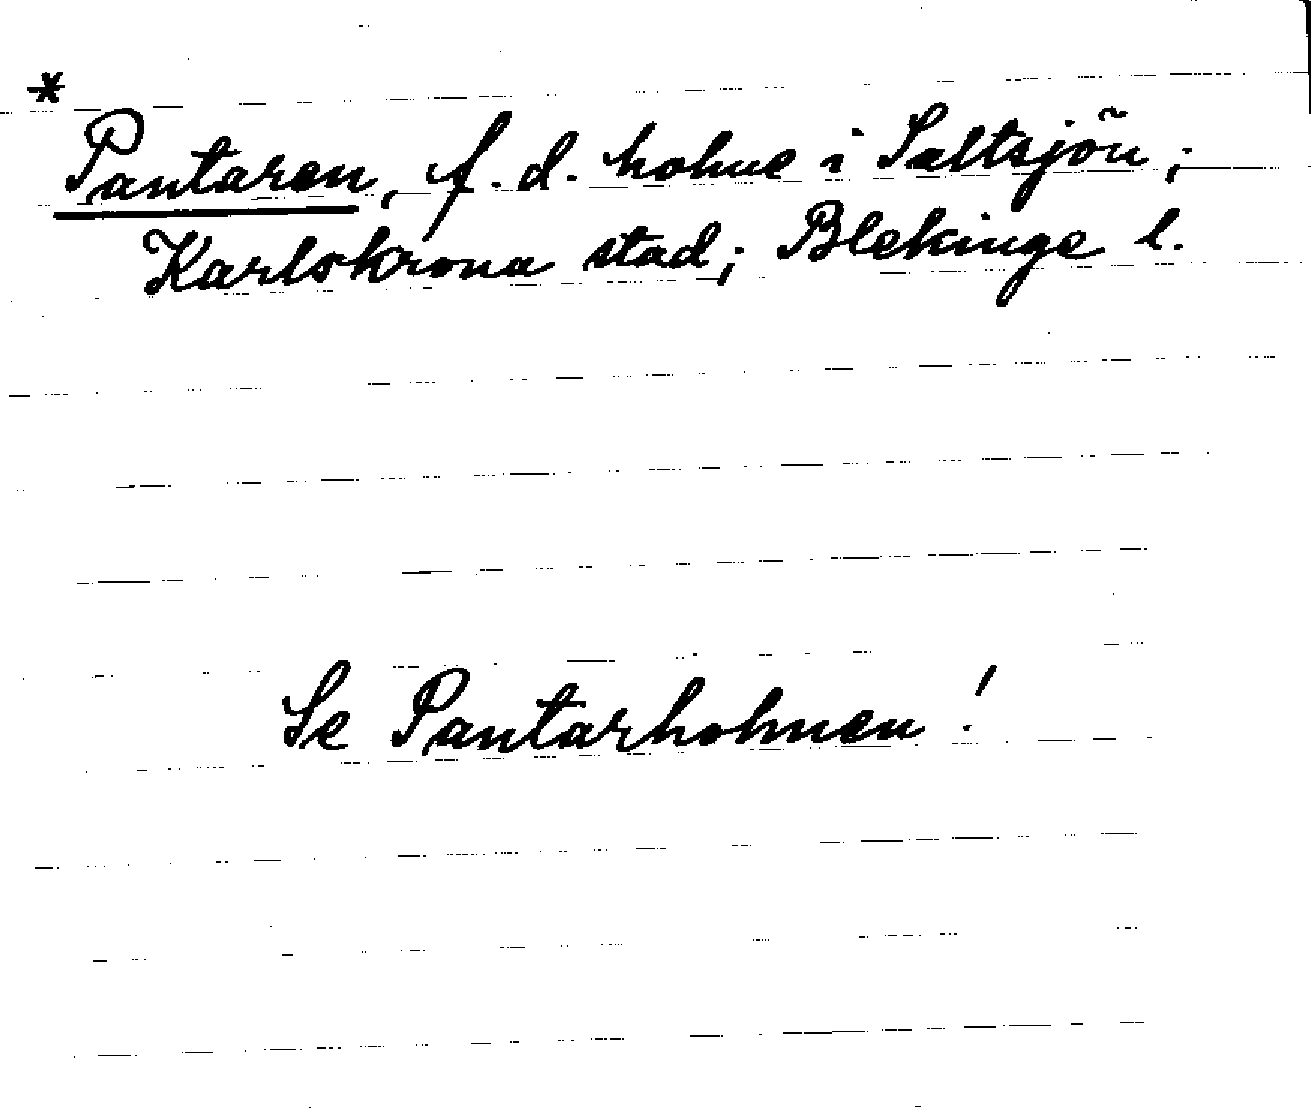 *
Pantaren, f. d. holme i Saltsjön;
Karlskrona stad; Blekinge l.
Se Pantarholmen!